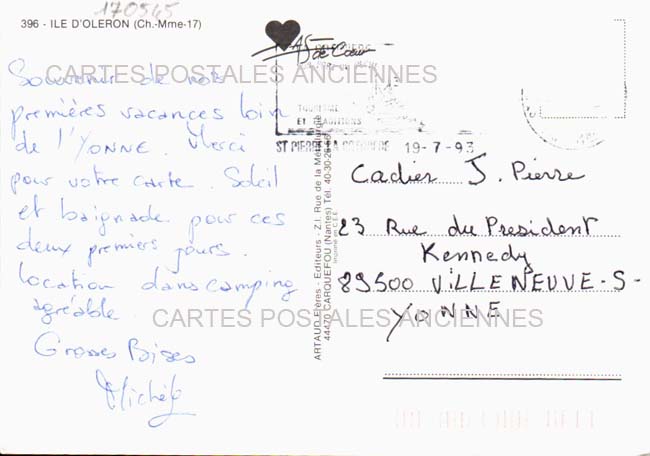 170545
396 - ILE D'OLERON (Ch.-Mme-17)
As de Cœur
CARTES POSTALES ANCIENNES
Souvenir de nos
premières vacances loin
de l'YONNE. Merci
pour votre carte. Soleil
et baignade pour ces
deux premiers jours.
Location dans camping
agréable.
Grosses Bises
Michèle
TOURISME
ET TRADITIONS
ST PIERRE LA
19-7-93
ARTAUD Frères - Editeurs - Z.I. Rue de la Métallurgie
44470 CARQUEFOU (Nantes) Tél. 40-30-
Imprimé en C.E.E.
Cadier J. Pierre
23 Rue du President
Kennedy
89500 VILLENEUVE-S-
YONNE
CARTES POSTALES ANCIENNES